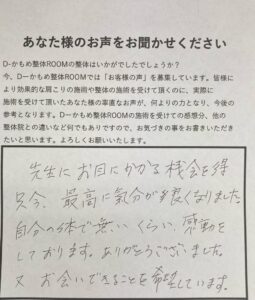 あなた様のお声をお聞かせください
D-かもめ整体ROOMの整体はいかがでしたでしょうか?
今、D-かもめ整体ROOMでは「お客様の声」を募集しています。皆様に
より効果的な肩こりの施術や整体の施術を受けて頂くのに、実際に
施術を受けて頂いたあなた様の率直なお声が、何よりの力となり、今後の
参考となります。D-かもめ整体ROOMの施術を受けての感想分、他の
整体院との違いなど何でもありですので、お気づきの事をお書きいただき
たいと思います。よろしくお願いいたします。
先生にお目にかかる機会を得
只今、最高に気分が良くなりました。
自分の体で無いくらい、感動を
しております。ありがとうございました。
又お会いできることを希望しています。